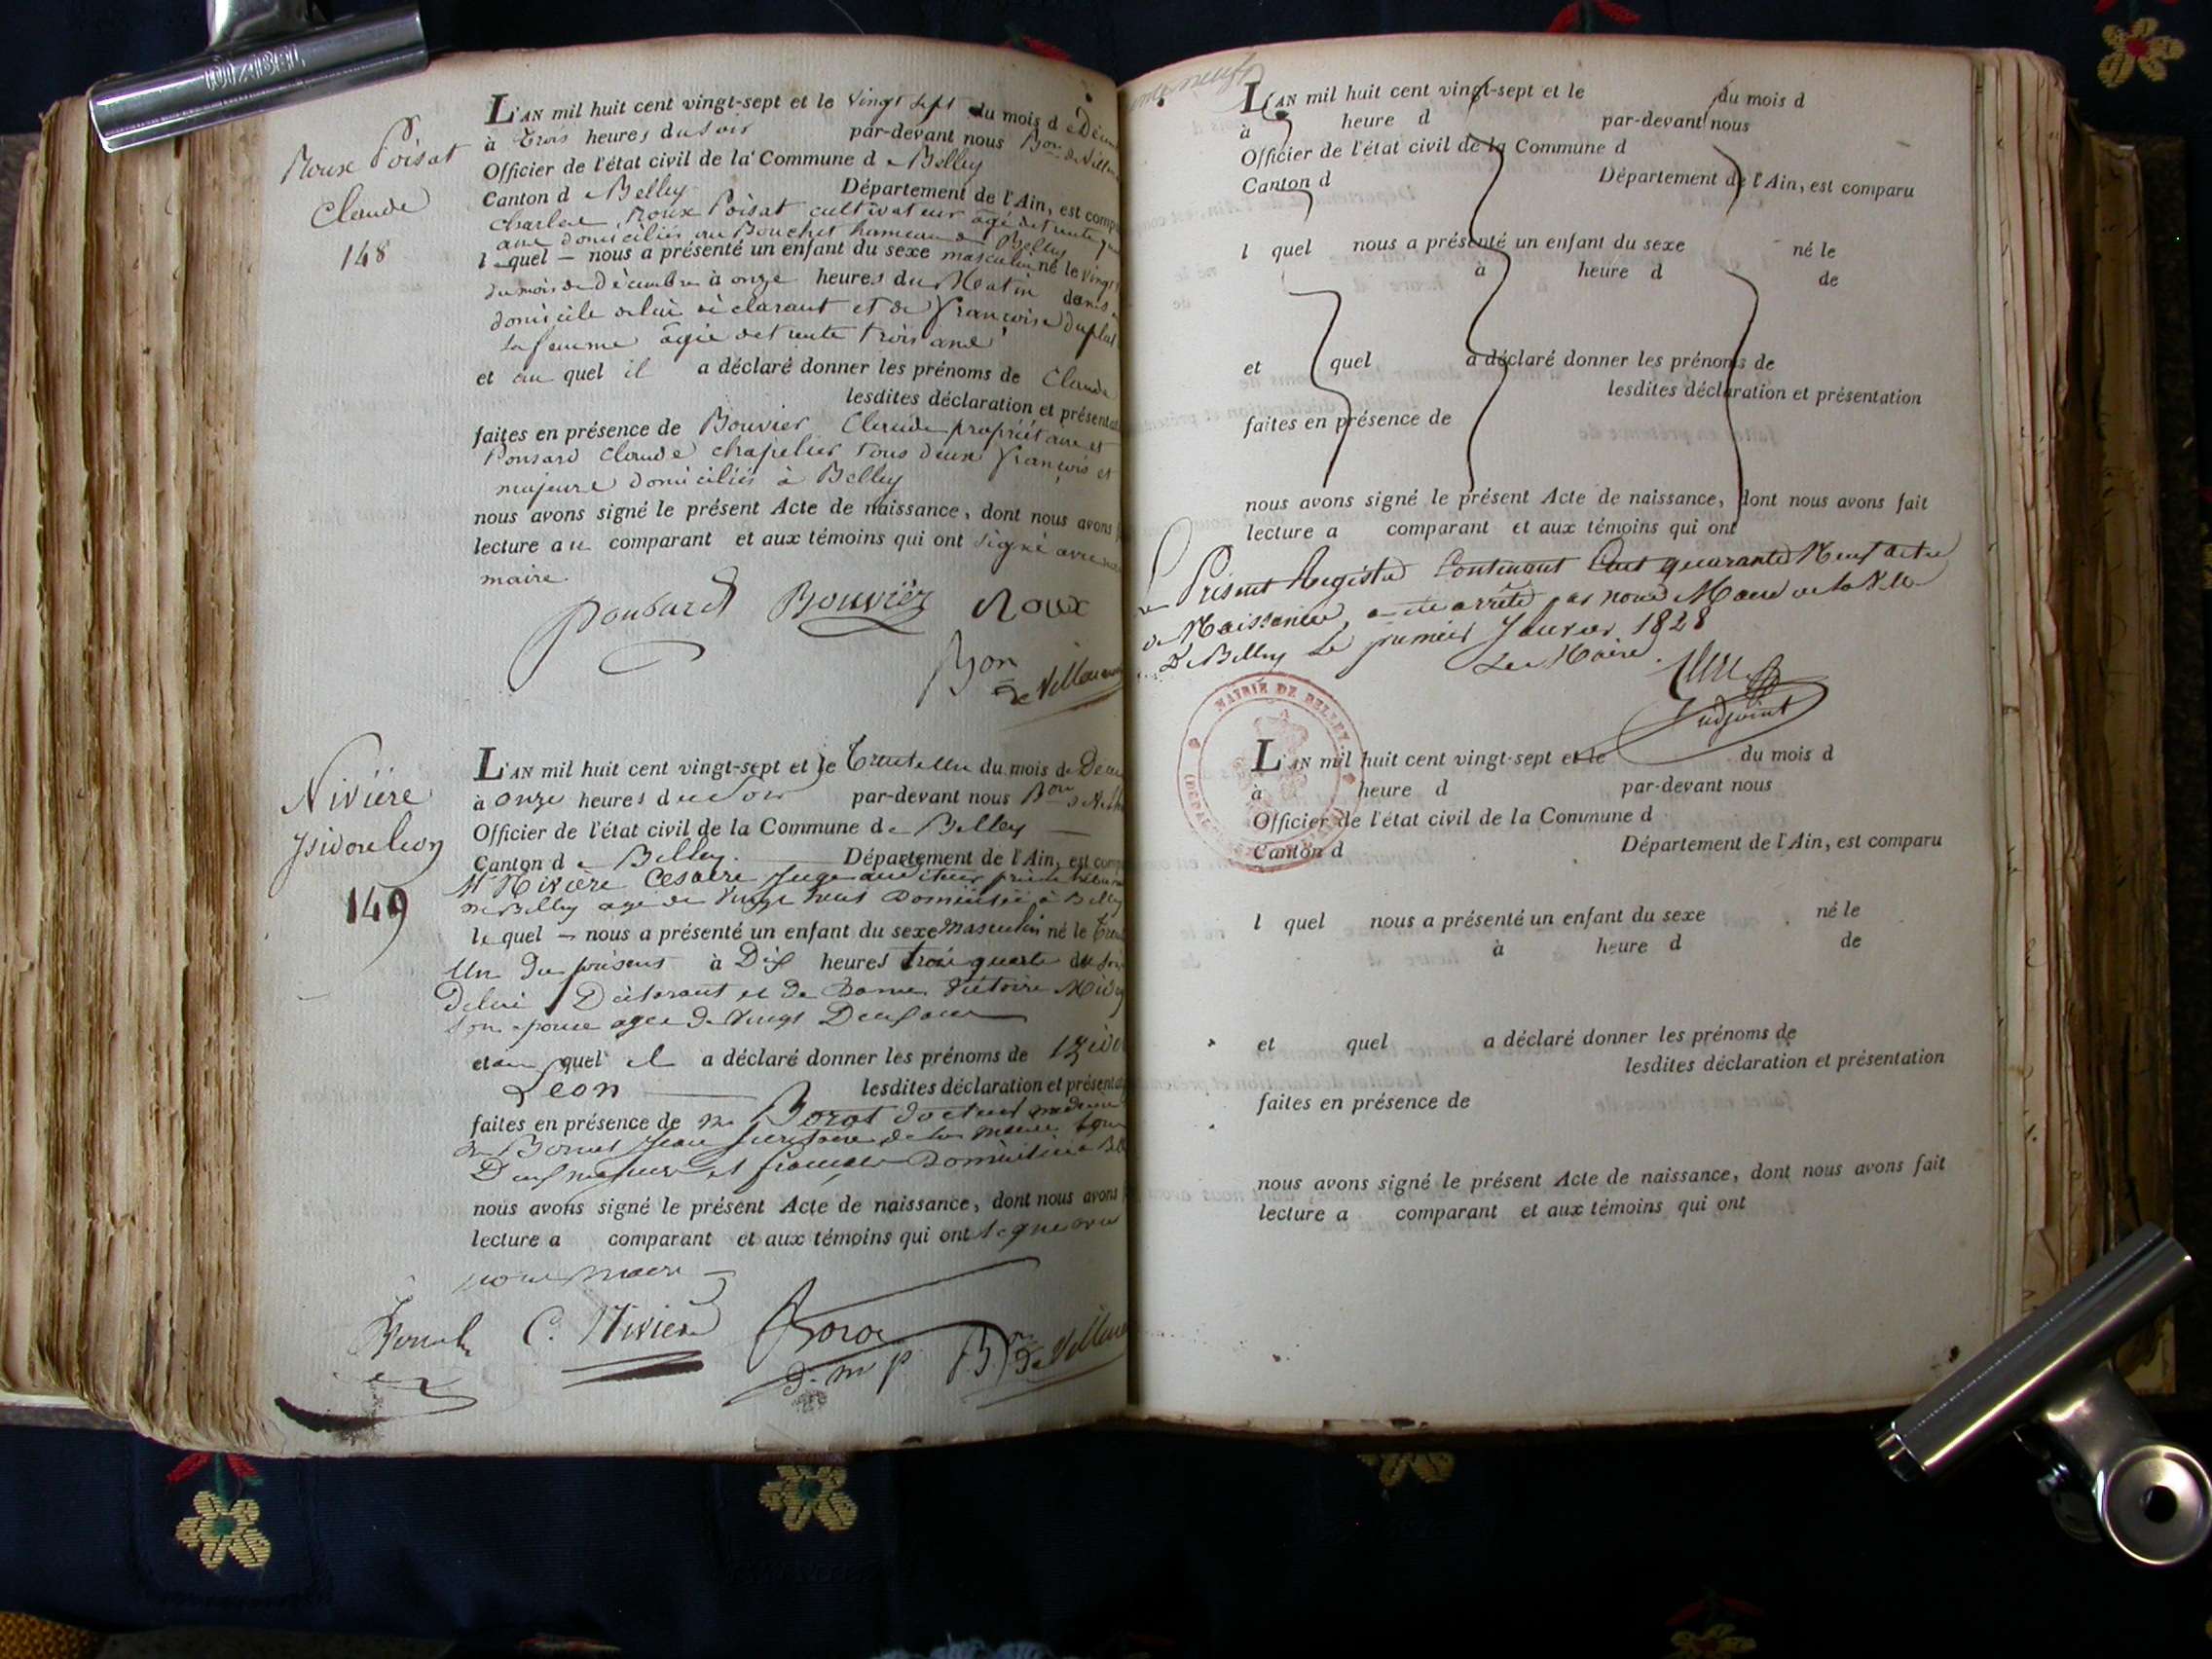 Roux Poisat
Claude
148
L'AN mil huit cent vingt-sept et le vingt sept du mois de
à trois heures du soir par-devant nous Bon de
Officier de l'état civil de la Commune de Belley
Canton de Belley Département de l'Ain, est
Charles Roux Poisat cultivateur âgé de trente
ans domicilié au Bouchet hameau de Belley
lequel — nous a présenté un enfant du sexe masculin né le vingt
du mois de Décembre à onze heures du Matin dans
domicile de lui déclarant et de Françoise
sa femme âgée de trente trois ans
et au quel il a déclaré donner les prénoms de Claude
lesdites déclaration et
faites en présence de Bouvier Claude propriétaire et
Ponsard Claude chapelier tous deux français et
majeurs domiciliés à Belley
nous avons signé le présent Acte de naissance, dont nous avons
lecture au comparant et aux témoins qui ont signé avec
maire.
Ponsard Bouvier Roux
Bon
de
Nivière
Isidore Léon
149
L'AN mil huit cent vingt-sept et le trente un du mois de
à onze heures du soir par-devant nous Bon de
Officier de l'état civil de la Commune de Belley —
Canton de Belley. — Département de l'Ain, est
Mr Nivière Cesaire Juge auditeur
de Belley agé de vingt huit domicilié à Belley
lequel — nous a présenté un enfant du sexe masculin né le
Un du présent à Dix heures trois quarts du soir
De lui Déclarant et de Dame Victoire
son epouse agée de vingt Deux ans
et au quel il a déclaré donner les prénoms de
Léon lesdites déclaration et
faites en présence de Mr docteur
Jean secretaire de la mairie
Deux majeurs et français domiciliés à
nous avons signé le présent Acte de naissance, dont nous avons
lecture a comparant et aux témoins qui ont signé avec
nous maire
C. Nivière
d. m. p. Bon de
L'AN mil huit cent vingt-sept et le du mois d
à heure d par-devant nous
Officier de l'état civil de la Commune d
Canton d Département de l'Ain, est comparu
l quel nous a présenté un enfant du sexe né le
à heure d de
et quel a déclaré donner les prénoms de
lesdites déclaration et présentation
faites en présence de
nous avons signé le présent Acte de naissance, dont nous avons fait
lecture a comparant et aux témoins qui ont
Le Présent Registre Contenant Cent quarante Neuf actes
de Naissances, a été arrêté par nous Maire de la Ville
De Belley Le premier Janvier 1828
Le Maire.
adjoint
MAIRIE DE BELLEY
L'AN mil huit cent vingt-sept et le du mois d
à heure d par-devant nous
Officier de l'état civil de la Commune d
Canton d Département de l'Ain, est comparu
l quel nous a présenté un enfant du sexe né le
à heure d de
et quel a déclaré donner les prénoms de
lesdites déclaration et présentation
faites en présence de
nous avons signé le présent Acte de naissance, dont nous avons fait
lecture a comparant et aux témoins qui ont